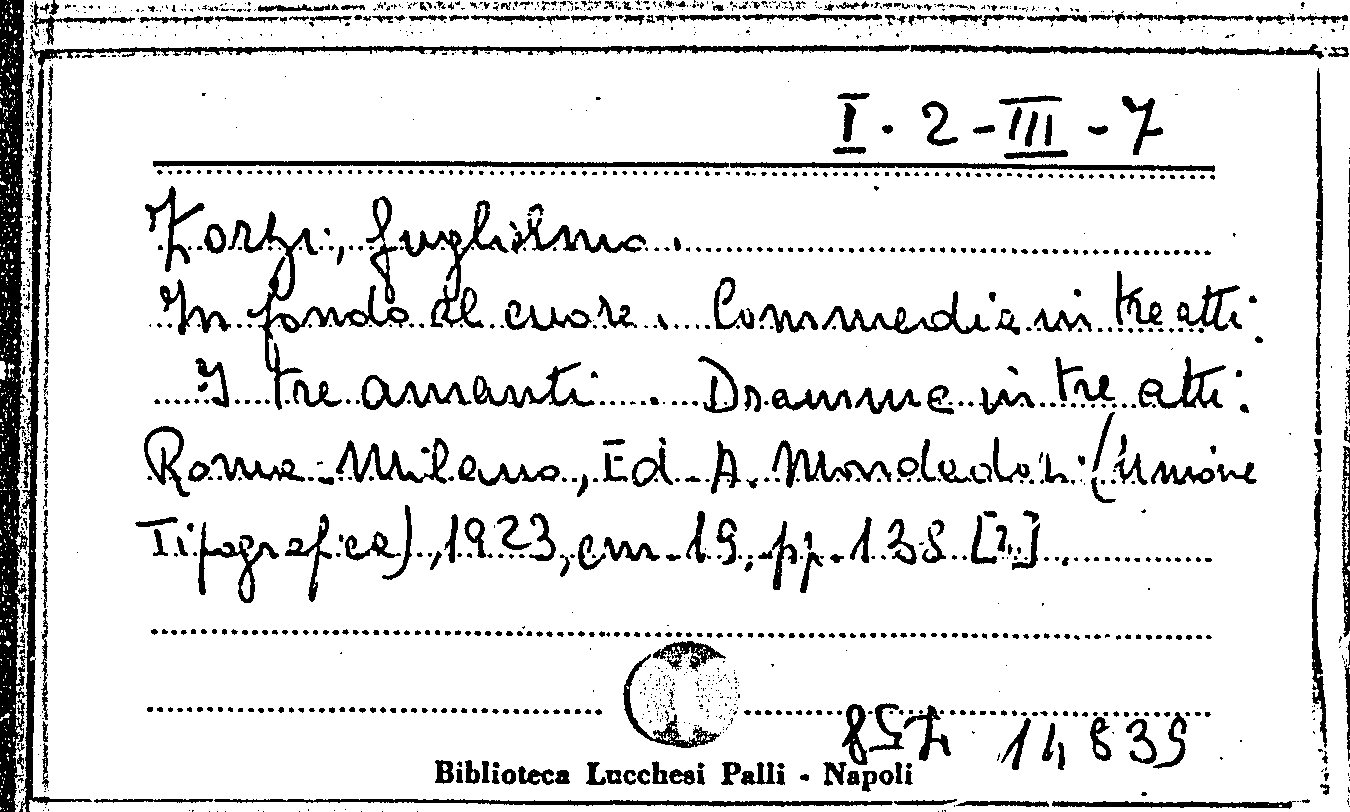 I. 2-III-7
Zorzi, Guglielmo.
In fondo al cuore. Commedia in tre atti.
I tre amanti. Dramma in tre atti.
Roma-Milano, Ed. A. Mondadori (Unione
Tipografica), 1923, cm. 19, pp. 138 [2].
14839
Biblioteca Lucchesi Palli - Napoli